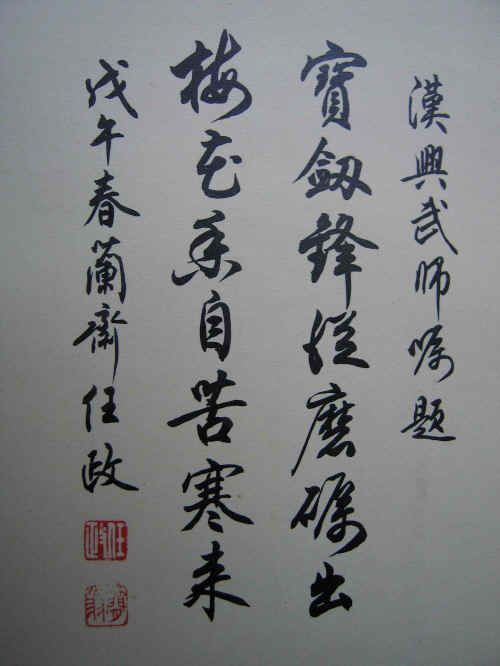 漢興武师嘱题
寶劔鋒從磨礪出
梅花香自苦寒来
戊午春蘭齋任政
任政